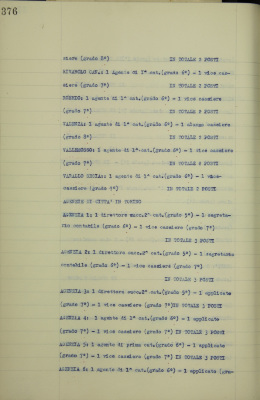 376
siere (grado 8°) IN TOTALE 2 POSTI
RIVAROLO CAN.: 1 Agente di 2° cat.(grado 6°) - 1 vice cas-
siere (grado 7°) IN TOTALE 2 POSTI
1 agente di 1° cat.(grado 6°) - 1 vice cassiere
(grado 7°) IN TOTALE 2 POSTI
1 agente di 1° cat.(grado 6°) - 1 cassiere
(grado 8°) IN TOTALE 2 POSTI
1 agente di 1° cat.(grado 6°) - 1 vice cassiere
(grado 7°) IN TOTALE 2 POSTI
1 agente di 1° cat (grado 6°) - 1 vice-
cassiere (grado 7°) IN TOTALE 2 POSTI
AGENZIE DI CITTA' IN TORINO
AGENZIA 1: 1 direttore 2° cat.(grado 5°) - 1 segreta-
rio contabile (grado 6°) - 1 vice cassiere (grado 7°)
IN TOTALE 3 POSTI
AGENZIA 2: 1 direttore 2° cat.(grado 5°) - 1 segretario
contabile (grado 6°) - 1 vice cassiere (grado 7°)
IN TOTALE 3 POSTI
AGENZIA 3: 1 direttore 2° cat.(grado 5°) - 1 applicato
(grado 7°) - 1 vice cassiere (grado 7°) IN TOTALE 3 POSTI
AGENZIA 4: 1 agente di 1° cat.(grado 6°) - 1 applicato
(grado 7°) - 1 vice cassiere (grado 7°) IN TOTALE 3 POSTI
AGENZIA 5: 1 agente di prima cat.(grado 6°) - 1 applicato
(grado 7°) - 1 vice cassiere (grado 7°) IN TOTALE 3 POSTI
AGENZIA 6: 1 agente di 1° cat.(grado 6°) - 1 applicato (gra-